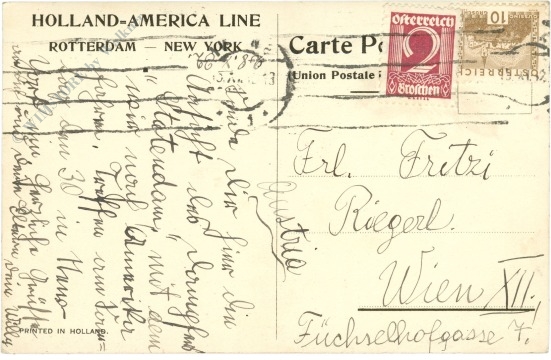 HOLLAND=AMERICA LINE
ROTTERDAM — NEW YORK
Carte Po
(Union Postale
Österreich
2
Groschen
10
ÖSTERREICH
Sende Dir hier die
Ansicht des Dampfers
"Statendam" mit dem
wir nach Amerika
fahren. Treffen
den 30 in New
York ein. Herzliche Grüße
Willy
Austria
Frl. Fritzi
Riegerl.
Wien XII.
Füchselhofgasse 7.
PRINTED IN HOLLAND.